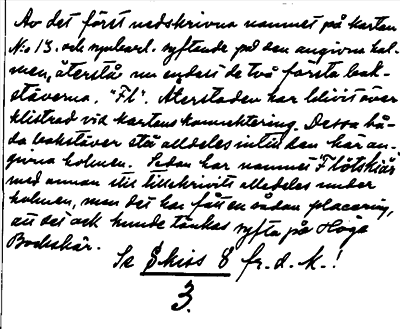 Av det först nedskrivna namnet på kartan
N:o 13. och uppenbarl. syftande på den angivna hol-
men, återstår nu endast de två första bok-
stäverna. "Fl". Återstoden har blivit över
klistrad vid kartans konnektering. Dessa bå-
da bokstäver stå alldeles intill den här an-
givna holmen. Sedan har namnet Flötskär
med annan stil tillskrivits alldeles under
holmen, men det har fått en sådan placering,
att det ock kunde tänkas syfta på Höga
Bockskär.
Se Skiss 8 fr. d. k.!
3.